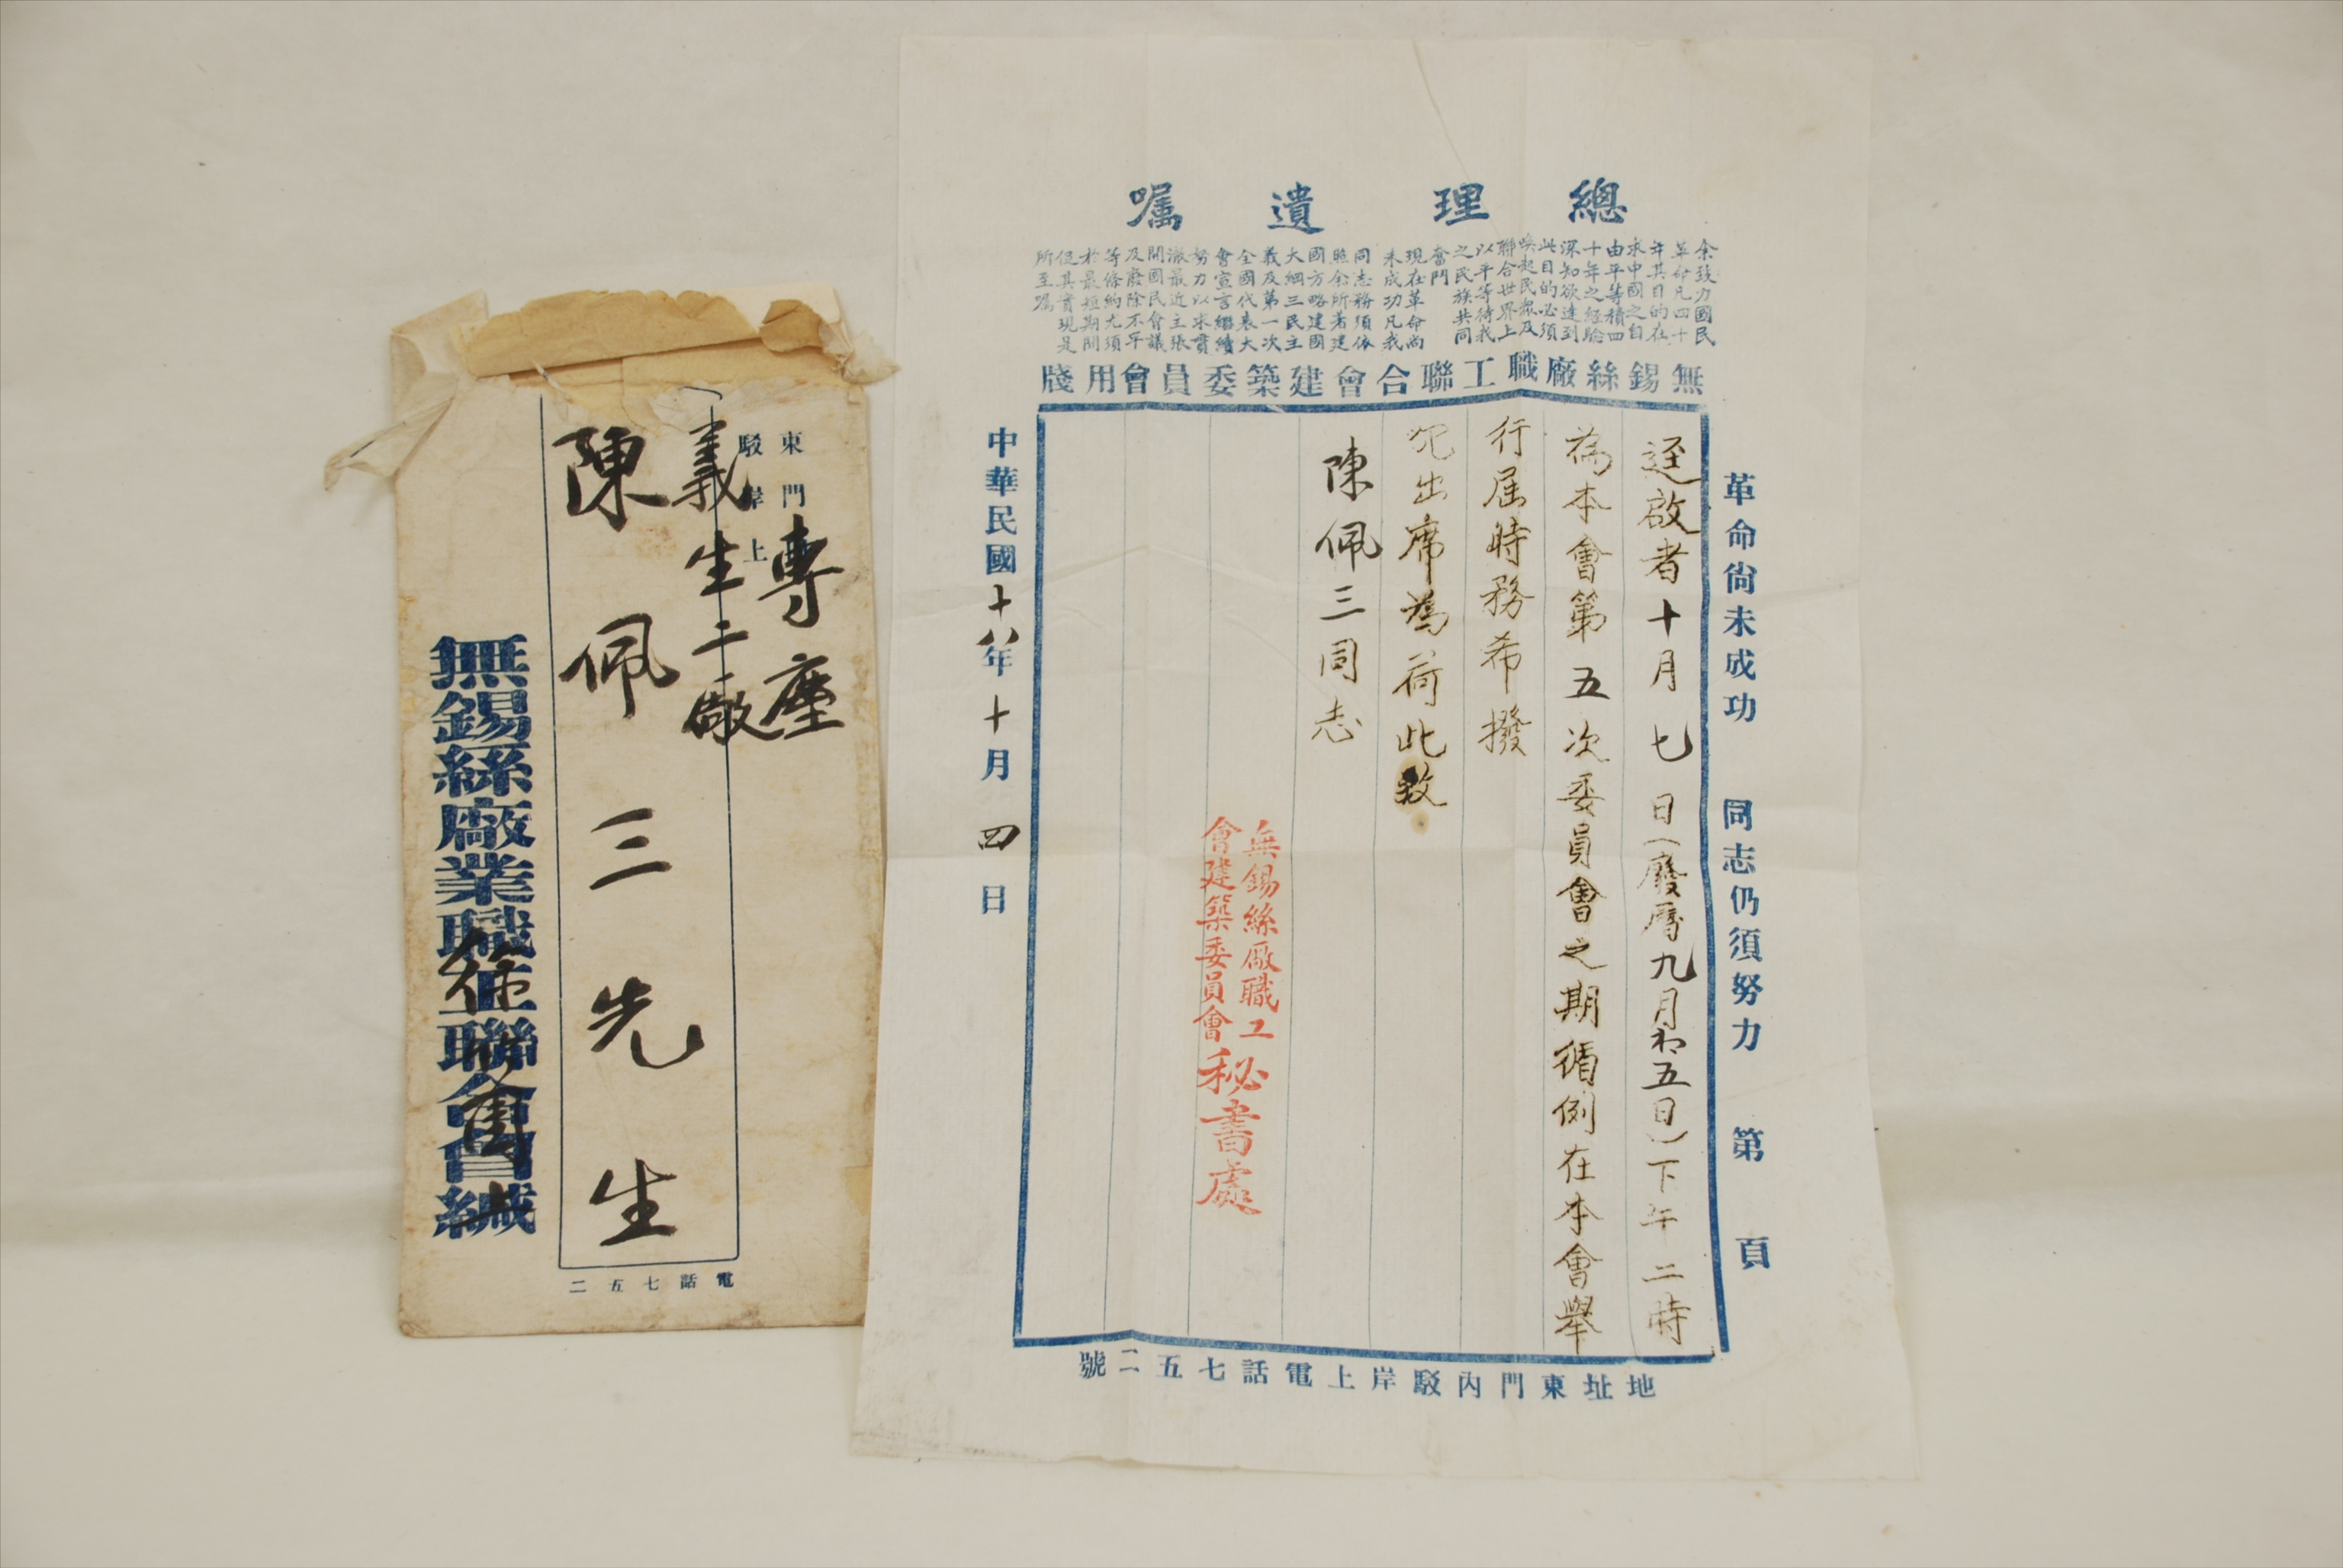 總理遺囑
余致力國民
革命凡四十
年其目的在
求中國之自
由平等積四
十年之經驗
深知欲達到
此目的必須
喚起民眾及
聯合世界上
以平等待我
之民族共同
奮鬥
現在革命尚
未成功凡我
同志務須依
照余所著建
國方略建國
大綱三民主
義及第一次
全國代表大
會宣言繼續
努力以求貫
澈最近主張
開國民會議
及廢除不平
等條約尤須
於最短期間
促其實現是
所至囑
無錫絲廠職工聯合會建築委員會用牋
革命尚未成功 同志仍須努力 第 頁
逕啟者十月七日(廢曆九月初五日)下午二時
為本會第五次委員會之期循例在本會舉
行屆時務希撥
冗出席為荷此致
陳佩三同志
無錫絲厰職工
會建築委員會
秘書處
中華民國十八年十月四日
地址東門內駁岸上電話七五二號
東門
駁岸上
專
義生二廠
陳佩三先生
無錫絲廠業職工聯合會緘
電話七五二